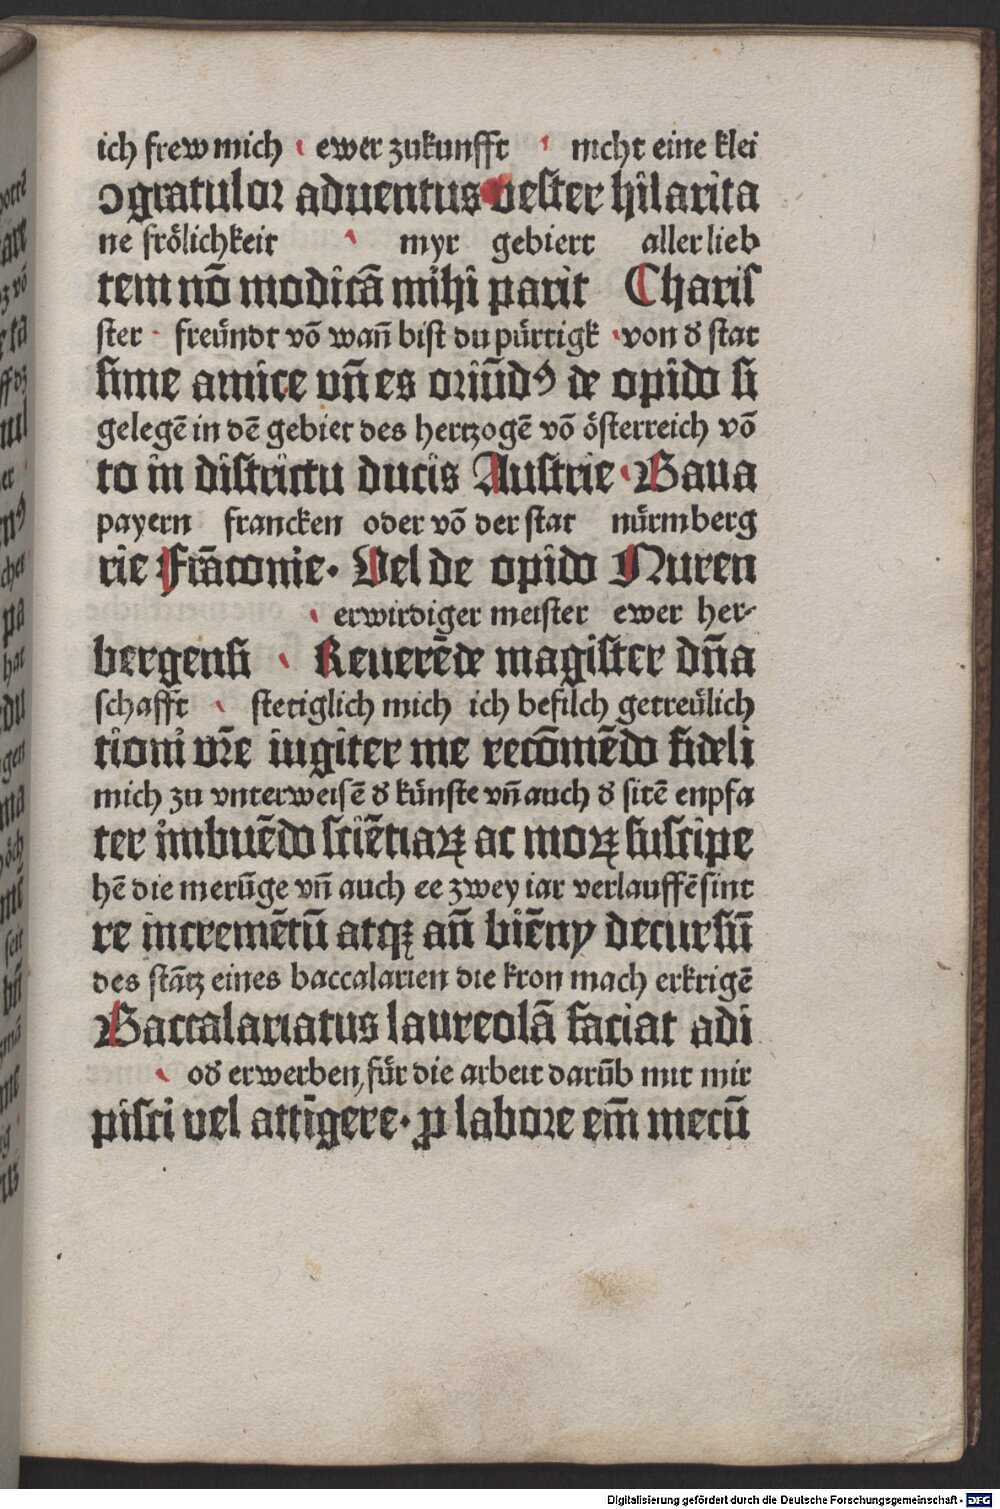 ich frew mich ewer zukunfft nicht eine klei
ↄgratulor aduentus vester hilarita
ne frölichkeit myr gebiert aller lieb
tem nō modicā mihi parit Charis
ster freündt vō wañ bist du pürtigk von ď stat
sime amice vñ es oriūdꝰ de opido si
gelegē in dē gebiet des hertzogē vō österreich vō
to in districtu ducis Austrie Baua
payern francken oder vō der stat nürmberg
rie Frāconie. Vel de opido Nuren
erwirdiger meister ewer her-
bergensi Reuerēde magister dña
schafft stetiglich mich ich befilch getreülich
tioni vr̄e iugiter me recōmēdo fideli
mich zu vnterweisē ď künste vñ auch ď sitē enpfa
ter imbuēdo sciētiaꝝ ac moꝝ suscipe
hē die merūge vñ auch ee zwey iar verlauffē sint
re incremētū atqꝫ añ biēny decursū
des stātz eines baccalarien die kron mach erkrigē
Baccalariatus laureolā faciat adi
oď erwerben, für die arbeit darūb mit mir
pisci vel attīgere. ꝓ labore em̄ mecū
Digitalisierung gefördert durch die Deutsche Forschungsgemeinschaft - DFG